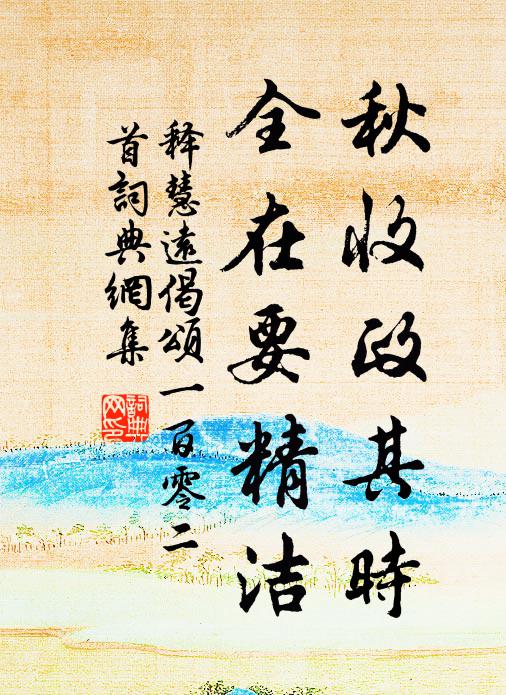 秋收政其時
全在要精洁
释慧遠偈頌一百零二
首詞典網集
詞典網印